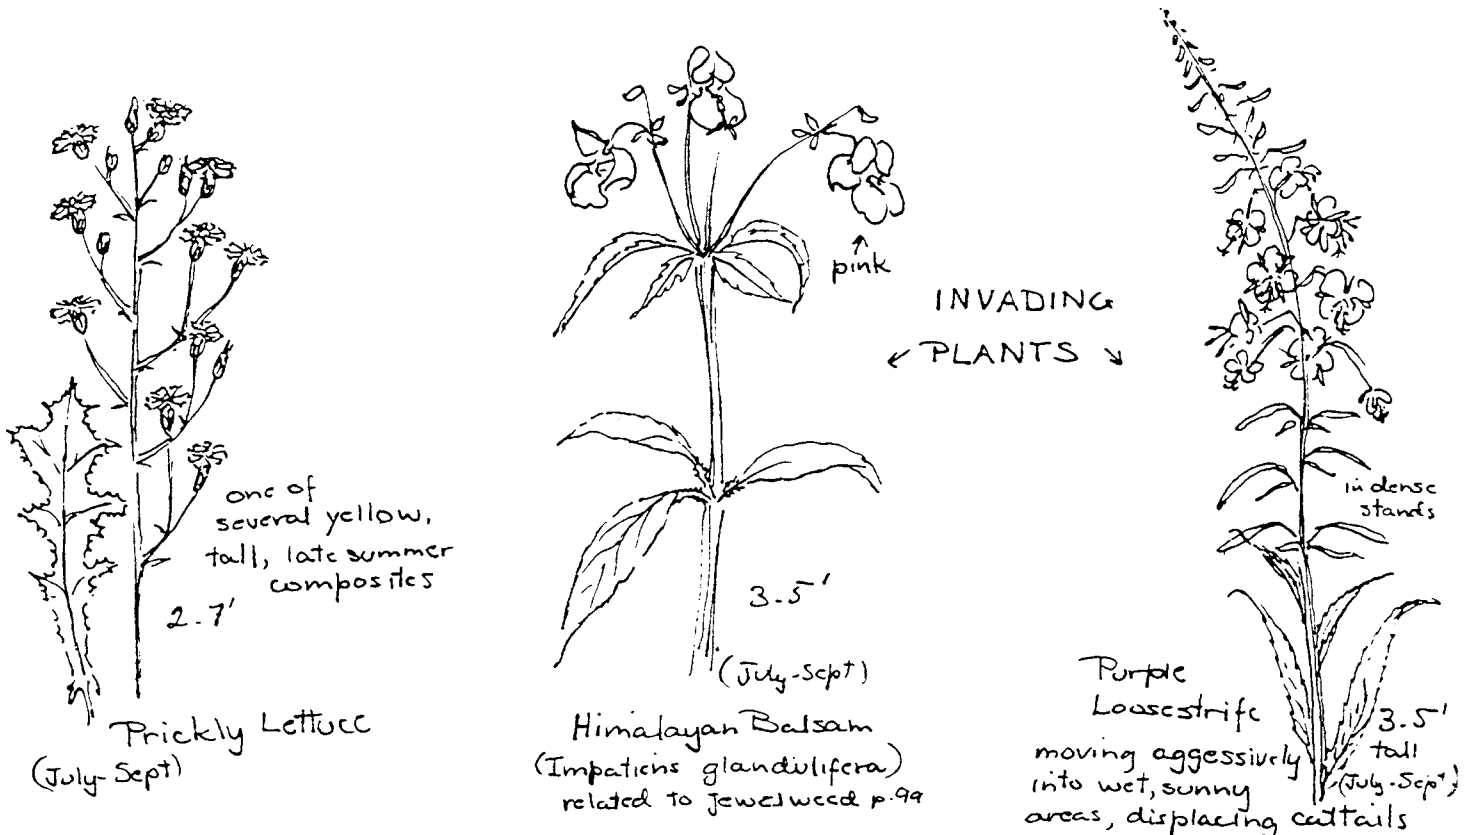 one of
several yellow,
tall, late summer
composites
2-7'
Prickly Lettuce
(July-Sept)
pink
INVADING
← PLANTS →
3-5'
(July-Sept)
Himalayan Balsam
(Impatiens glandulifera)
related to jewelweed p.99
in dense
stands
Purple
Loosestrife
3-5'
tall
(July-Sept)
moving aggessively
into wet, sunny
areas, displacing cattails